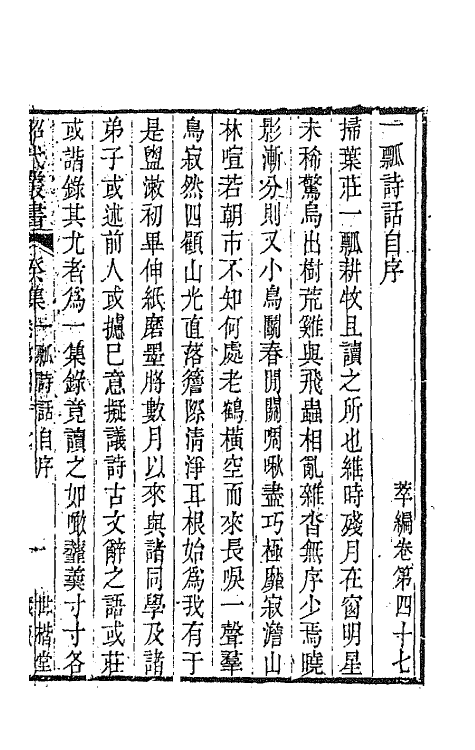 一瓢詩話自序
萃編卷第四十七
掃葉莊一瓢耕牧且讀之所也維時殘月在窗明星
未稀驚烏出樹荒雞與飛蟲相亂雜沓無序少焉曉
影漸分則又小鳥鬬春閒關啁啾盡巧極靡寂澹山
林喧若朝市不知何處老鶴橫空而來長唳一聲羣
鳥寂然四顧山光直落簷際清淨耳根始爲我有于
是盥漱初畢伸紙磨墨將數月以來與諸同學及諸
弟子或述前人或攄已意擬議詩古文辭之語或莊
或諧錄其尤者爲一集錄竟讀之如噉虀羹寸寸各
昭代叢書
癸集
一瓢詩話自序
一
世楷堂